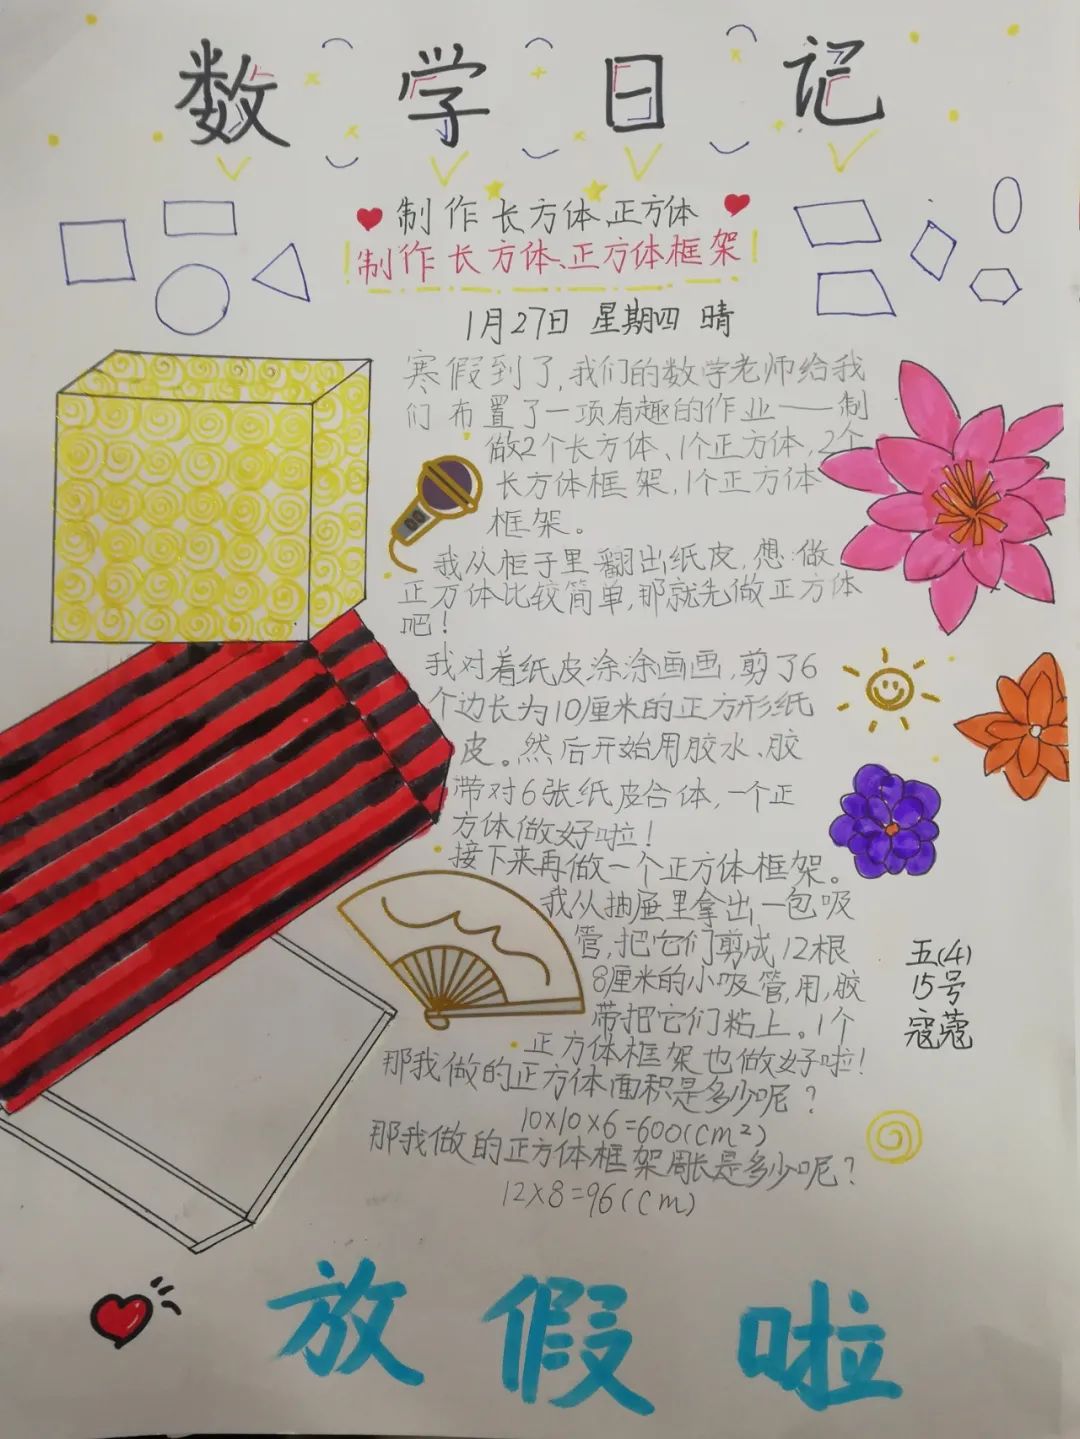 数学日记
制作长方体、正方体
制作长方体、正方体框架
1月27日 星期四 晴
寒假到了,我们的数学老师给我
们布置了一项有趣的作业——制
做2个长方体、1个正方体,2个
长方体框架,1个正方体
框架。
我从柜子里翻出纸皮,想:做
正方体比较简单,那就先做正方体
吧!
我对着纸皮涂涂画画,剪了6
个边长为10厘米的正方形纸
皮。然后开始用胶水、胶
带对6张纸皮合体,一个正
方体做好啦!
接下来再做一个正方体框架。
我从抽屉里拿出一包吸
管,把它们剪成12根
8厘米的小吸管,用,胶
带把它们粘上。1个
正方体框架也做好啦!
那我做的正方体面积是多少呢?
10×10×6=600(cm²)
那我做的正方体框架周长是多少呢?
12×8=96(cm)
五(4)
15号
寇蔻
放假啦